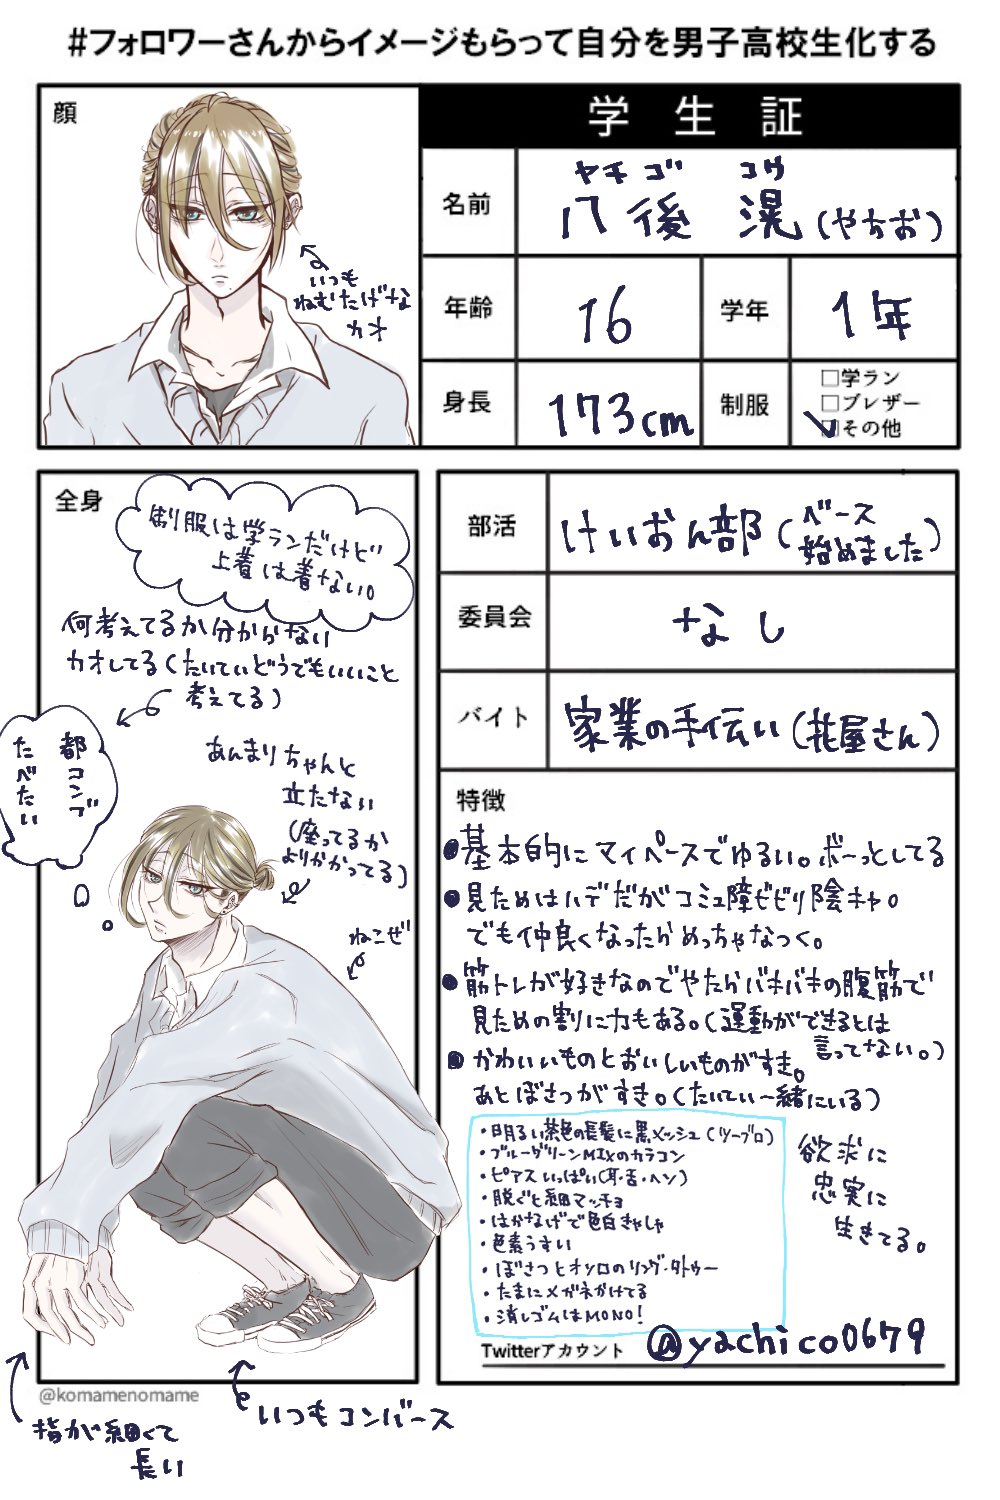 #フォロワーさんからイメージもらって自分を男子高校生化する
顔
いつも
ねむたげな
カオ
学生証
名前
ヤチゴ コウ
八後 滉(やちお)
年齢
16
学年
1年
身長
173cm
制服
□学ラン
□ブレザー
☑その他
全身
制服は学ランだけど
上着は着ない。
何考えてるか分からない
カオしてる(たいていどうでもいいこと
考えてる)
都コンブ
たべたい
あんまりちゃんと
立たない
(座ってるか
よりかかってる)
ねこぜ
部活
けいおん部(ベース
始めました)
委員会
なし
バイト
家業の手伝い(花屋さん)
特徴
●基本的にマイペースでゆるい。ボーっとしてる
●見ためはハデだがコミュ障ビビリ陰キャ。
でも仲良くなったらめっちゃなつく。
●筋トレが好きなのでやたらバキバキの腹筋で
見ための割に力もある。(運動ができるとは
言ってない。)
●かわいいものとおいしいものがすき。
あとぼさつがすき。(たいてい一緒にいる)
・明るい茶色の長髪に黒メッシュ(ツーブロ)
・ブルーグリーンMIXのカラコン
・ピアスいっぱい(耳・舌・ヘソ)
・脱ぐと細マッチョ
・はかなげで色白きゃしゃ
・色素うすい
・ぼさつとオソロのリング・タトゥー
・たまにメガネかけてる
・消しゴムはMONO!
欲求に
忠実に
生きてる。
Twitterアカウント @yachico0679
@komamenomame
指が細くて
長い
いつもコンバース